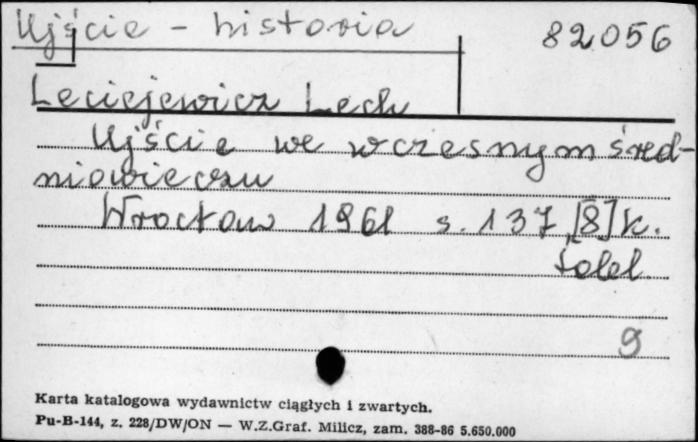 Ujście - historia 82056
Leciejewicz Lech
Ujście we wczesnym śred-
niowieczu
Wrocław 1961 s. 137, [8] k.
tabl.
9
Karta katalogowa wydawnictw ciągłych i zwartych.
Pu-B-144, z. 228/DW/ON — W.Z.Graf. Milicz, zam. 388-86 5.650.000